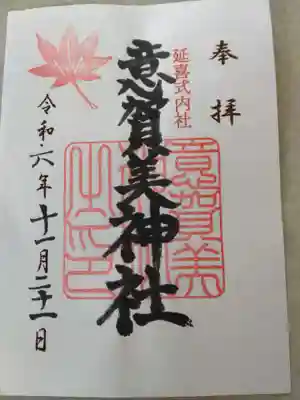 奉拝
延喜式内社
意賀美神社
意賀美
令和六年十一月二十一日